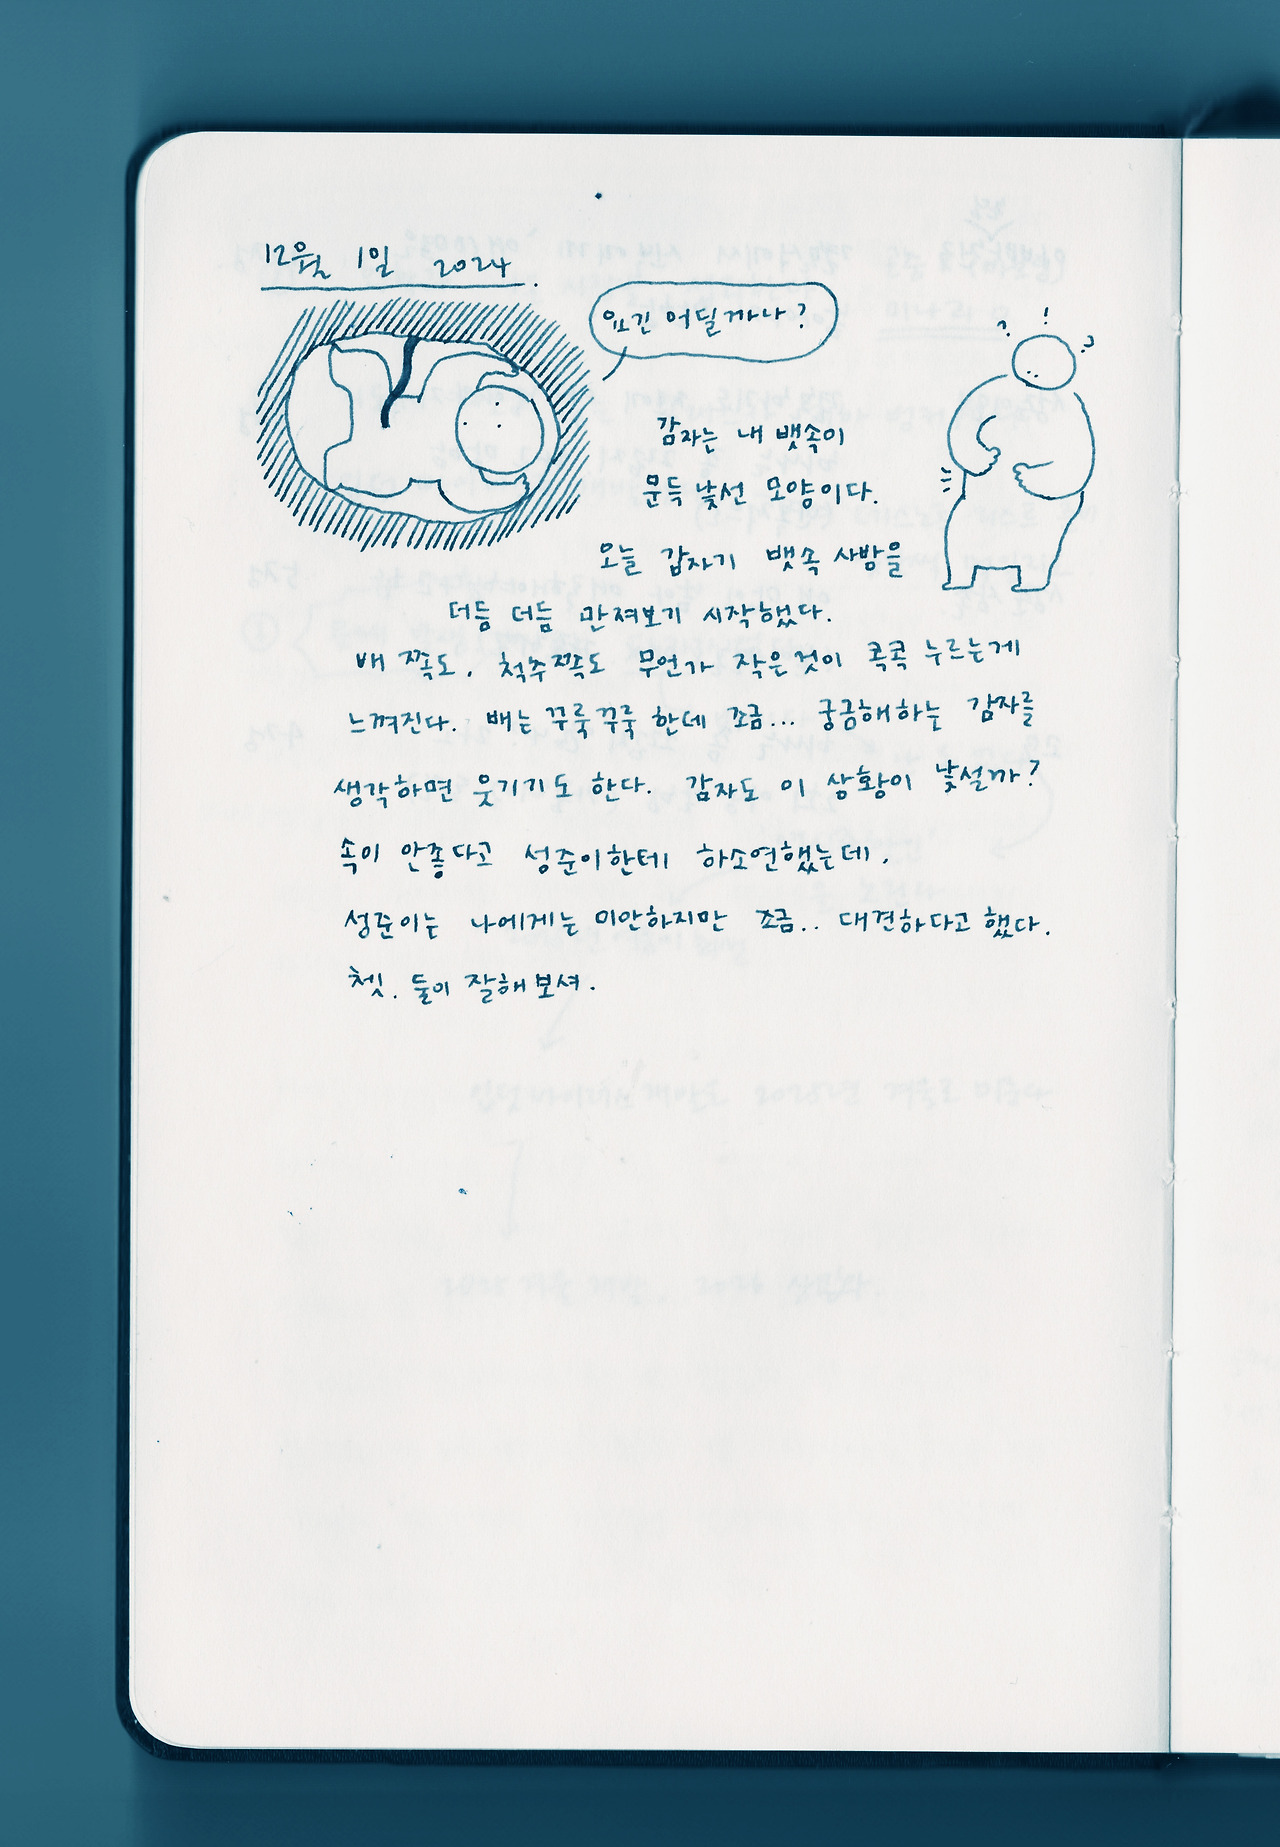 12월 1일 2024.
요긴 어딜까나?
? ! ?
감자는 내 뱃속이
문득 낯선 모양이다.
오늘 갑자기 뱃속 사방을
더듬 더듬 만져보기 시작했다.
배 쪽도. 척추쪽도 무언가 작은것이 콕콕 누르는게
느껴진다. 배는 꾸룩꾸룩 한데 조금... 궁금해하는 감자를
생각하면 웃기기도 한다. 감자도 이 상황이 낯설까?
속이 안좋다고 성준이한테 하소연했는데.
성준이는 나에게는 미안하지만 조금.. 대견하다고 했다.
쳇. 둘이 잘해보셔.